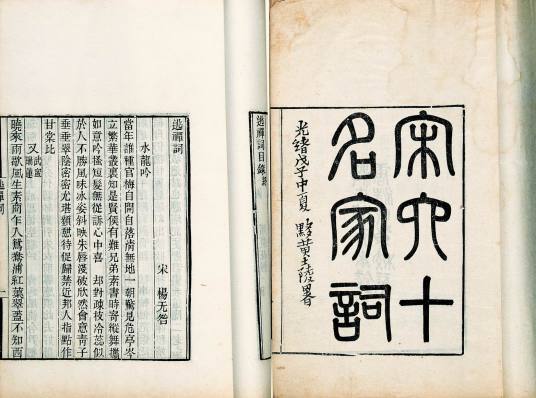 宋六十
名家詞
光緒戊子中夏 黟黃士陵署
逃禪詞目錄終
逃禪詞
宋 楊无咎
水龍吟
當年誰種官梅自開自落清無地一朝驚見危亭岑
立繁華叢裏知是賢侯有難兄弟素書時寄縱舞攜
如意吟搔短髮無從誹心中喜 却對疎枝冷蕊似
於人不勝風味冰姿斜映朱唇淺破欣然會意青子
垂垂翠陰密密尤堪頻憩待促歸禁近邦人指點作
甘棠比
又 武寧瑞蓮
曉來雨歇風生素商乍入鴛鴦浦紅葉翠蓋不知西